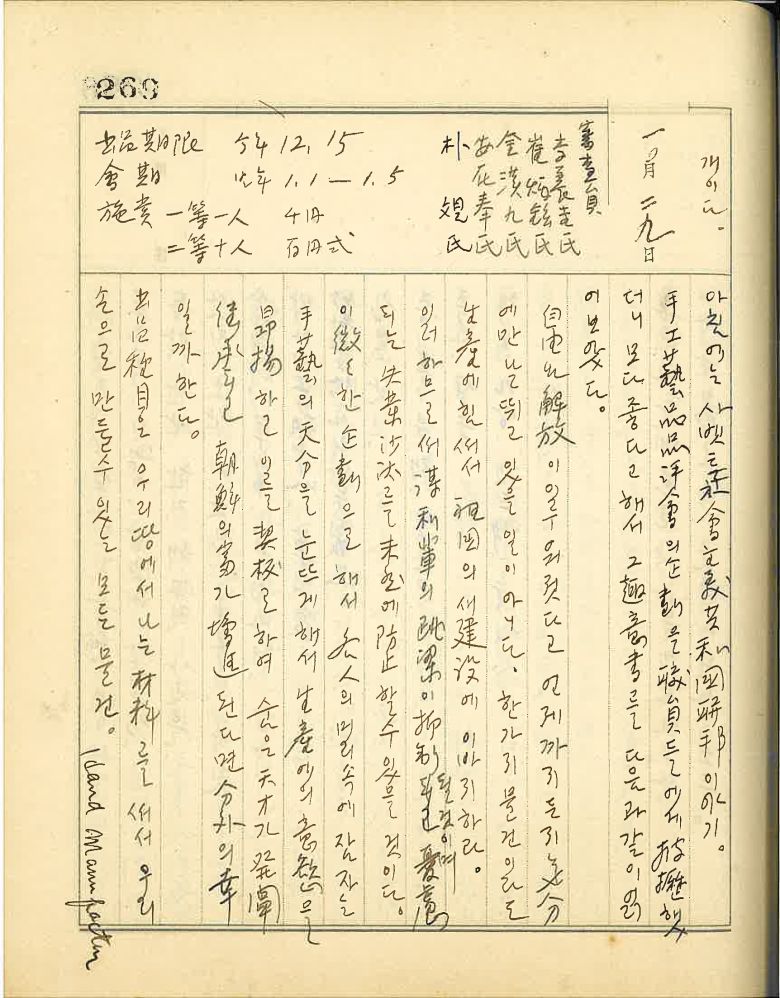 269
개이다.
一〇月 二九日
審査員
金漢九氏
安 奉氏
朴 氏
出品期限 今年 12, 15
會期 1.1 — 1.5
施賞 一等一人 千円
二等十人 百円式
아침에는 사벳트社會主義共和國聯邦 이야기.
手工藝品品評會의 企劃을 職員들에게 披攊했
더니 모다 좋다고 해서 그 趣意書를 다음과 같이 읽
어보았다.
自由와 解放이 일우워젓다고 언제까지든지 氣分
에만 날뛰고 있을 일이 아니다. 한가지 물건이라도
生產에 힘써서 祖国의 새建設에 이바지하라.
이러하므로써 謀利輩의 跳梁이 抑制될것이며 憂慮
되는 失業沙汰를 未然에 防止할수 있을 것이다.
이 微々한 企劃으로 해서 各人의 머리속에 잠자는
手藝의 天分을 눈뜨게 해서 生產에의 意慾을
昻揚하고 이를 契机로 하여 숨은 天才가 發闡
継承되고 朝鮮의 富가 增進된다면 分外의 幸
일까 한다.
出品種目은 우리 땅에서 나는 材料를 써서 우리
손으로 만들수 있는 모든 물건.
Hand Manufactur